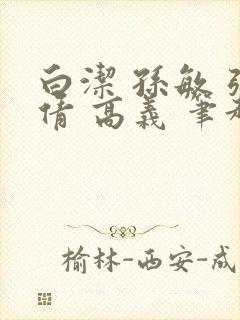 白潔 孫敏 張
倩 高義 筆
榆林-西安-成